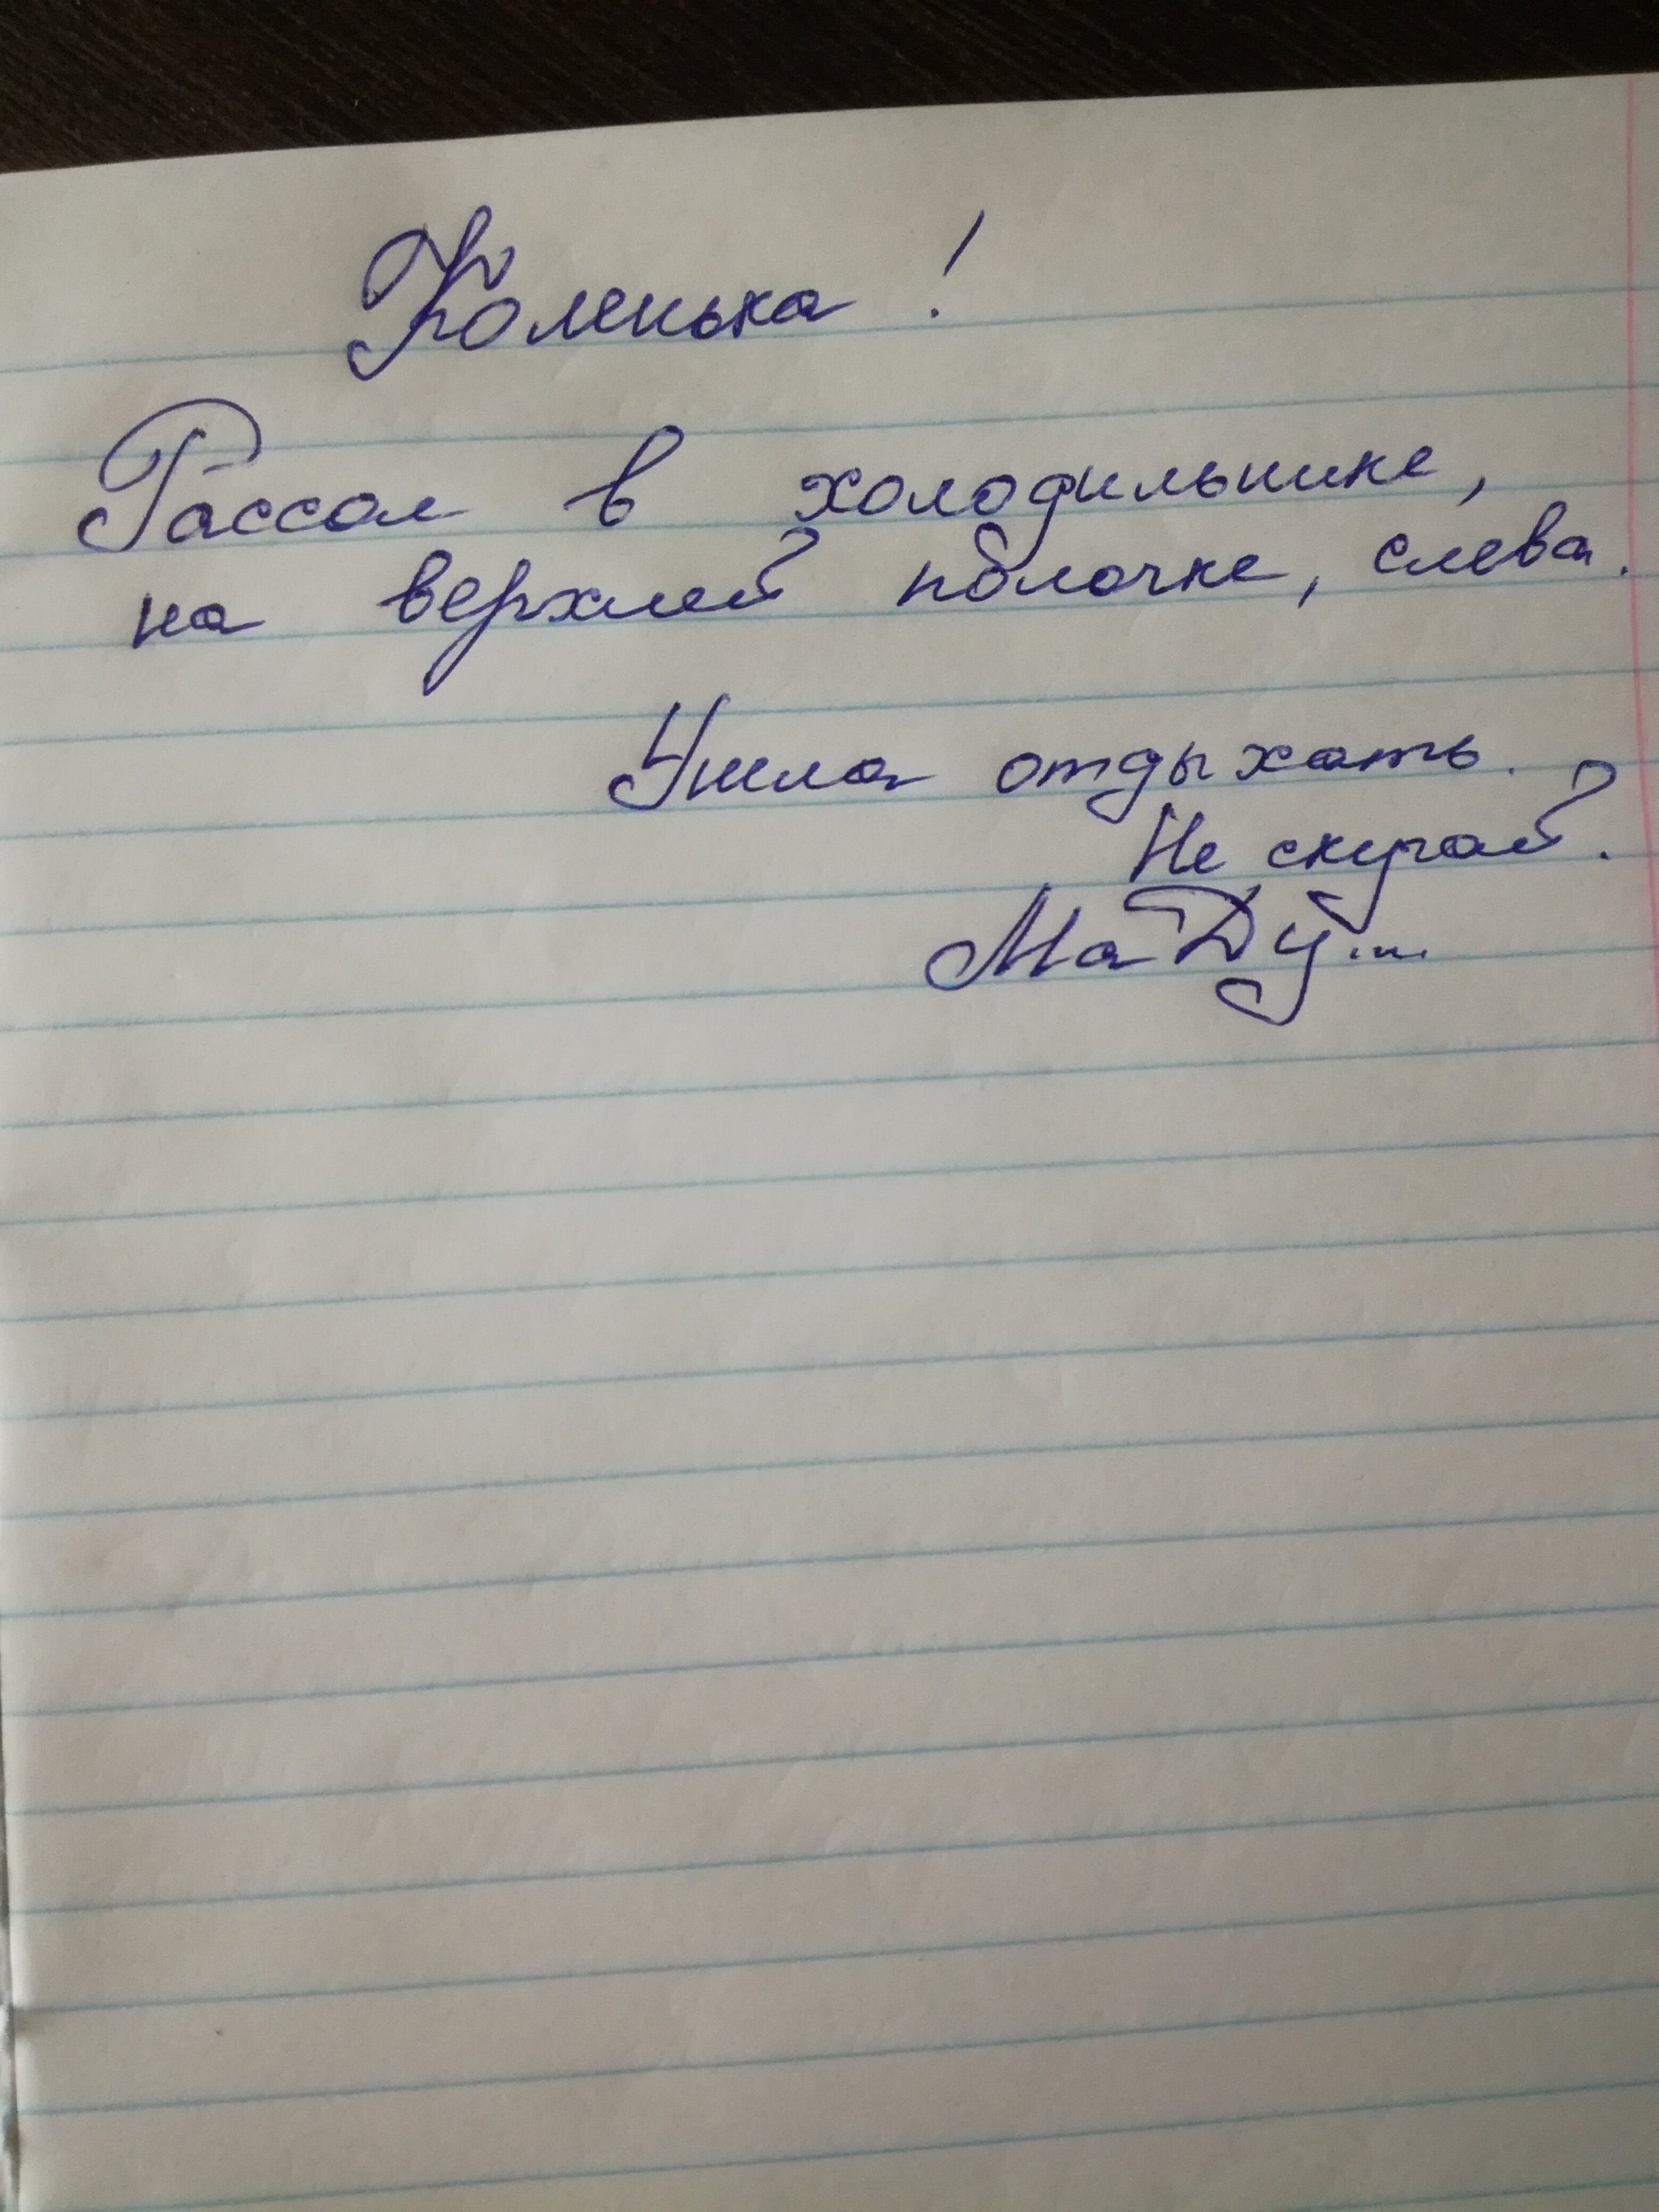 Коленька!
Рассол в холодильнике,
на верхней полочке, слева.
Ушла отдыхать.
Не скучай.